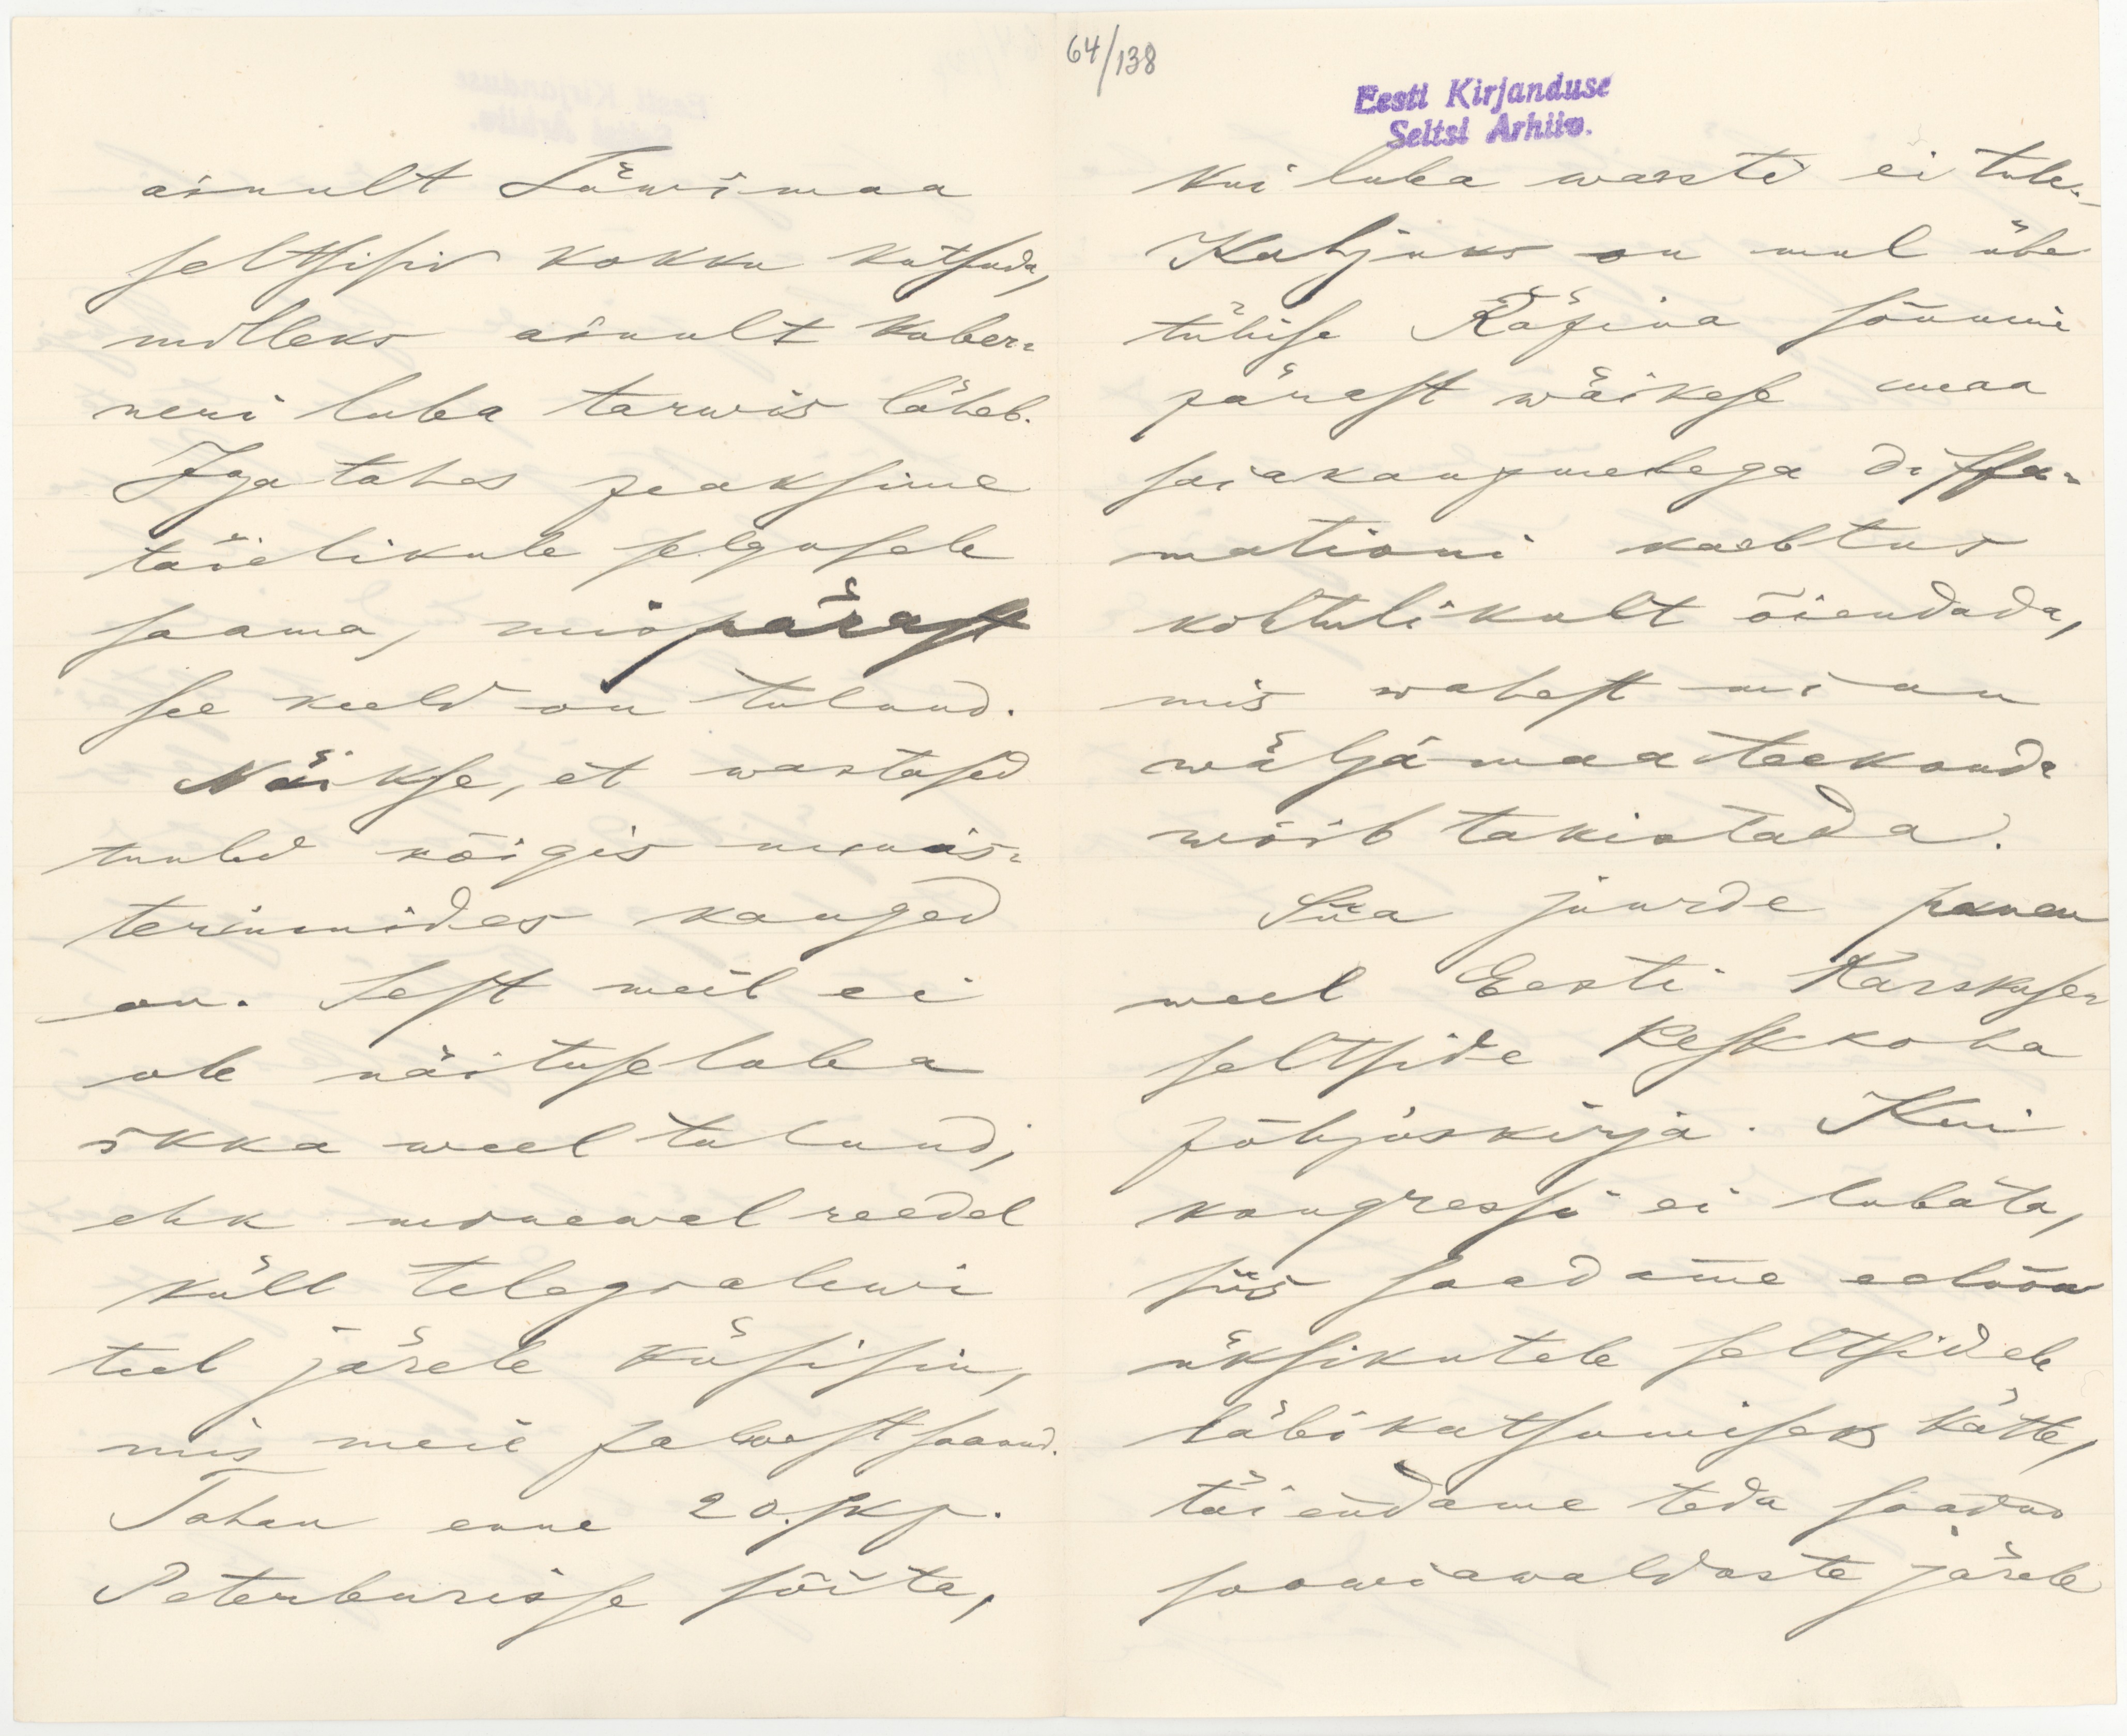 64/138
Eesti Kirjanduse
Seltsi Arhiiv.
ainult Liiwimaa
seltsisid kokku kutsuda,
milleks ainult kuber-
neri luba tarwis läheb.
Iga tahes peaksime
täielikule selgusele
saama, mispärast
see keeld on tulnud.
Näikse, et wastased
tuuled kõigis minis-
teriumides kanged
on. Sest meil ei
ole näituse luba
ikka weel tulnud,
ehk minewal reedel
küll telegrahwi
teel järele küsisin,
mis meie palwest saanud.
Tahan enne 20. skp.
Peterburisse sõita,
kui luba warsti ei tule.
Kahjuks on mul ühe
tühise Räpina sõnumi
pärast wäikese maa
saiakaupmehega diffa-
mationi kaebtus
kohtulikult õiendada,
mis wahest minu
wäljamaa teekonda
wõib takistada.
Siia juurde panen
weel Eesti Karskuse
seltside keskkoha
põhjuskirja. Kui
kongressi ei lubata,
siis saadame eelnõu
üksikutele seltsidele
läbikatsumiseks kätte,
täiendame teda saadud
soowiawalduste järele